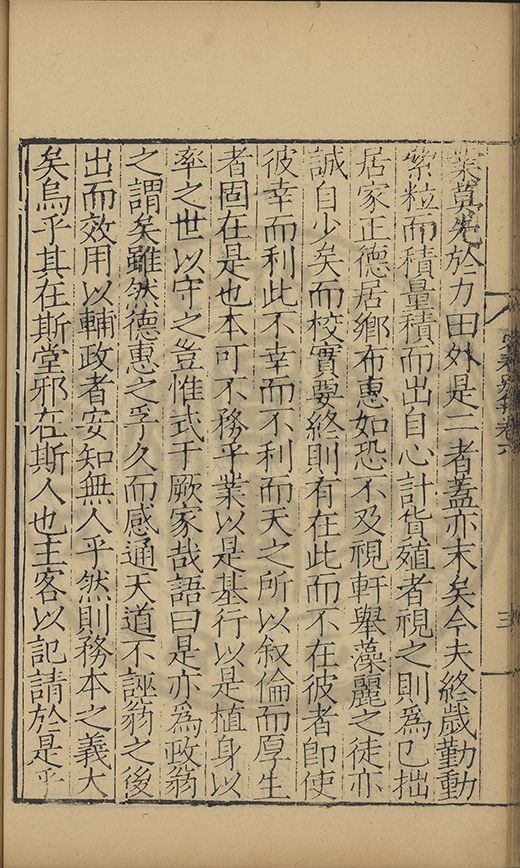 業莫先於力田外是二者蓋亦末矣今夫終歲勤動
縈粒而積量積而出自心計貨殖者視之則為已拙
居家正德居鄉布惠如恐不及視軒舉藻麗之徒亦
誠自少矣而校實要終則有在此而不在彼者即使
彼幸而利此不幸而不利而天之所以叙倫而厚生
者固在是也本可不務乎業以是基行以是植身以
率之世以守之豈惟式于厥家哉語曰是亦為政翁
之謂矣雖然德惠之孚久而感通天道不誣翁之後
出而效用以輔政者安知無人乎然則務本之義大
矣烏乎其在斯堂邪在斯人也主客以記請於是乎
卷六
三